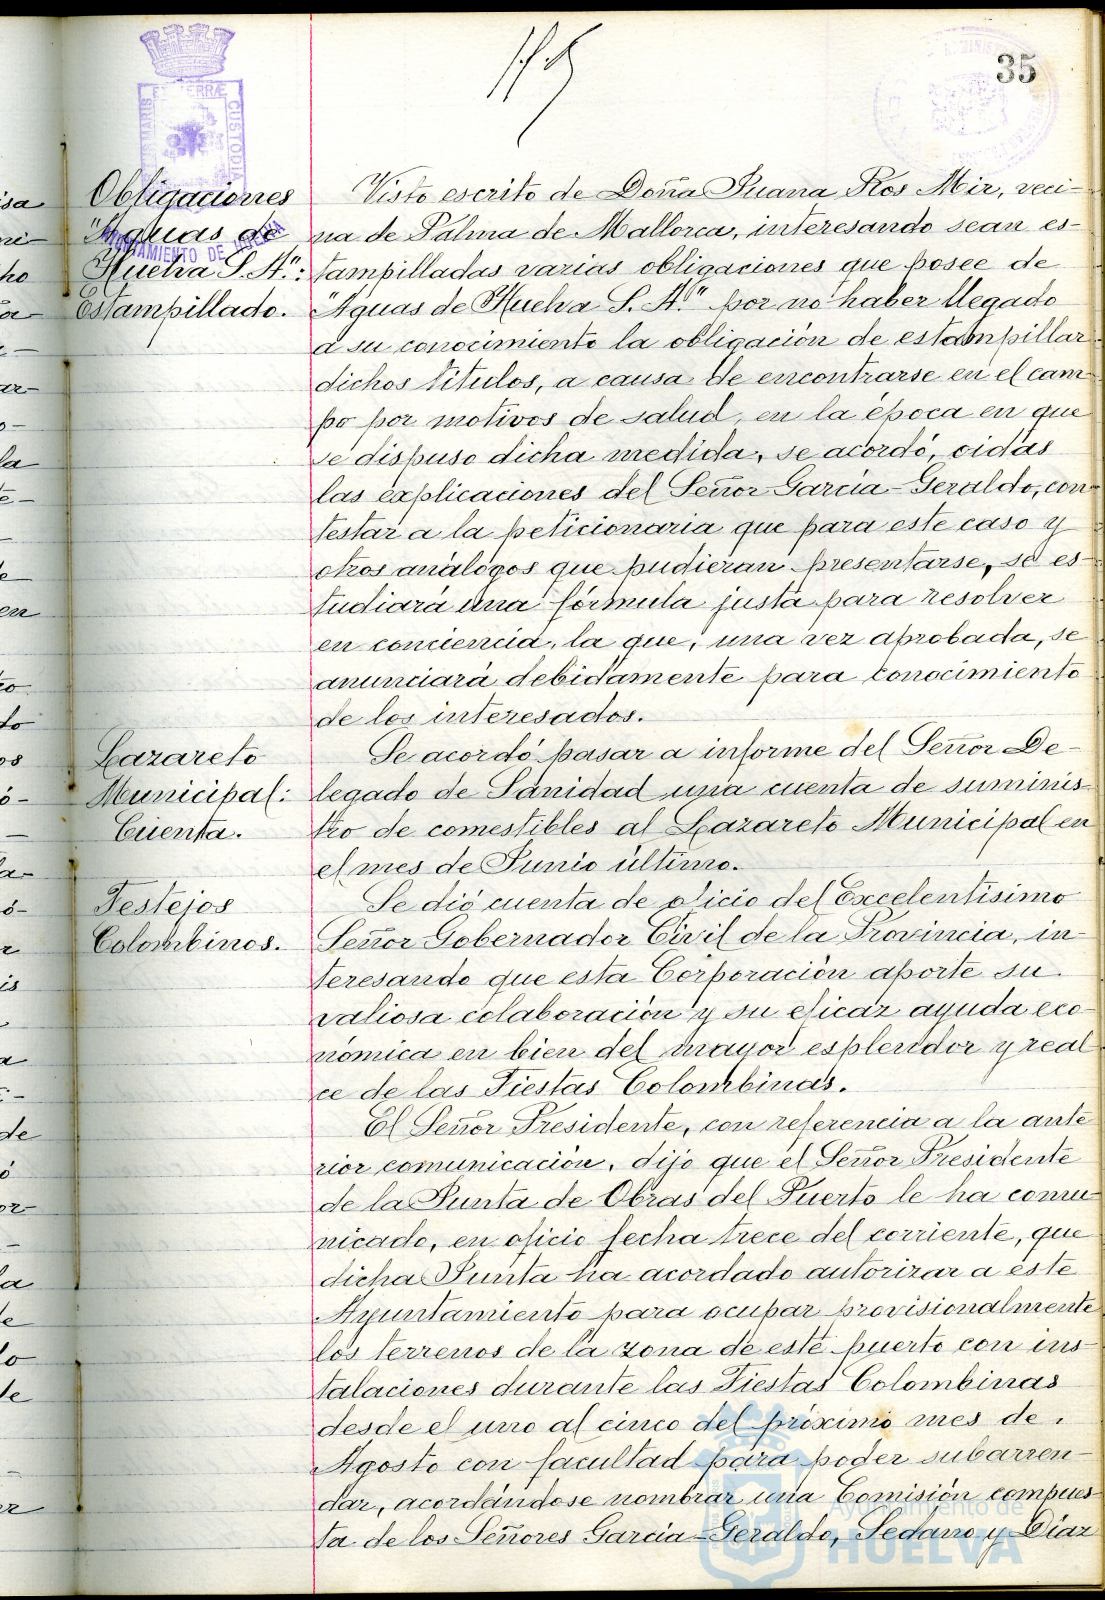 35
Obligaciones
"Aguas de
Huelva S. A.":
Estampillado.
Visto escrito de Doña Juana Ros Mir, veci-
na de Palma de Mallorca, interesando sean es-
tampilladas varias obligaciones que posee de
"Aguas de Huelva S. A." por no haber llegado
a su conocimiento la obligación de estampillar
dichos titulos, a causa de encontrarse en el cam-
po por motivos de salud, en la época en que
se dispuso dicha medida, se acordó, oidas
las explicaciones del Señor Garcia-Geraldo, con-
testar a la peticionaria que para este caso y
otros análogos que pudieran presentarse, se es-
tudiará una fórmula justa para resolver
en conciencia, la que, una vez aprobada, se
anunciará debidamente para conocimiento
de los interesados.
Lazareto
Municipal:
Cuenta.
Se acordó pasar a informe del Señor De-
legado de Sanidad una cuenta de suminis-
tro de comestibles al Lazareto Municipal en
el mes de Junio último.
Festejos
Colombinos.
Se dió cuenta de oficio del Excelentisimo
Señor Gobernador Civil de la Provincia, in-
teresando que esta Corporación aporte su
valiosa colaboración y su eficaz ayuda eco-
nómica en bien del mayor esplendor y real-
ce de las Fiestas Colombinas.
El Señor Presidente, con referencia a la ante
rior comunicación, dijo que el Señor Presidente
de la Junta de Obras del Puerto le ha comu-
nicado, en oficio fecha trece del corriente, que
dicha Junta ha acordado autorizar a este
Ayuntamiento para ocupar provisionalmente
los terrenos de la zona de este puerto con ins-
talaciones durante las Fiestas Colombinas
desde el uno al cinco del próximo mes de
Agosto con facultad para poder subarren-
dar, acordándose nombrar una Comisión compues-
ta de los Señores Garcia-Geraldo, Sedano y Diaz
Ayuntamiento de
HUELVA